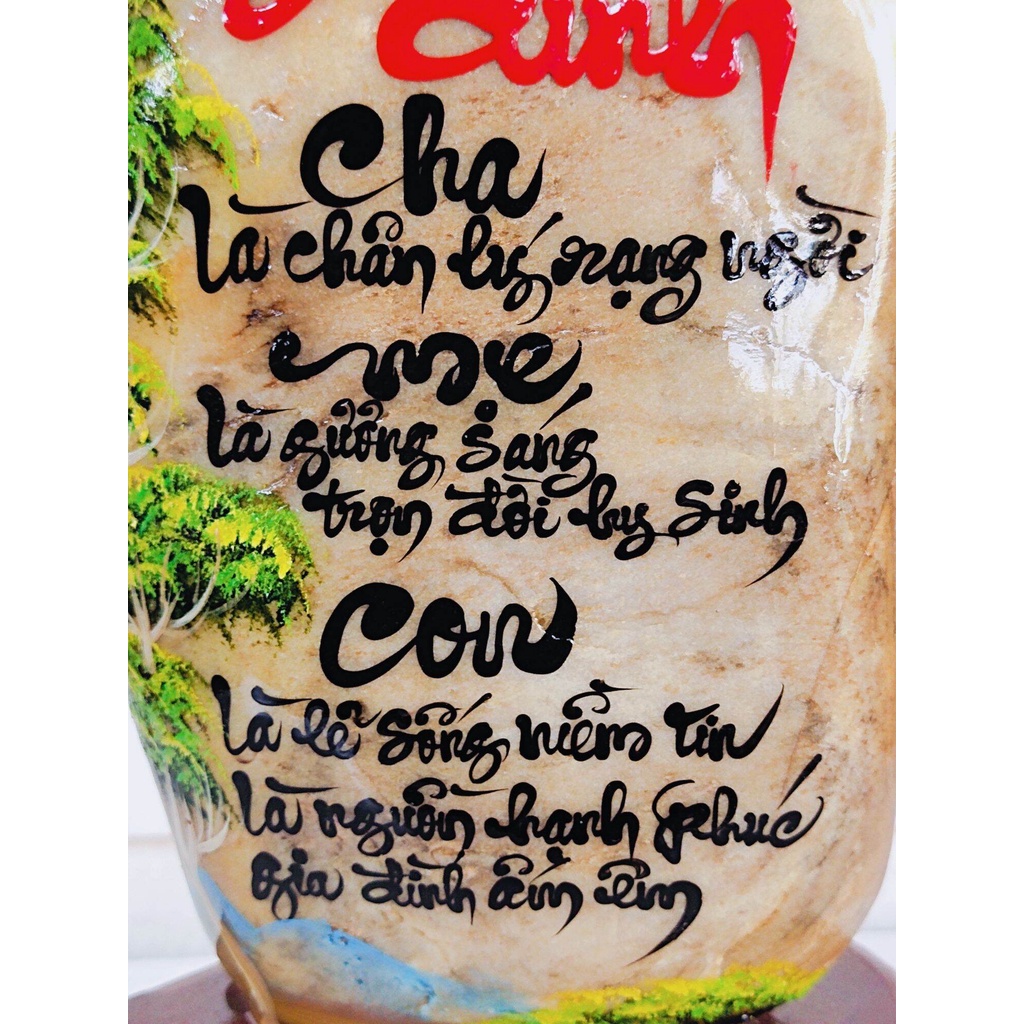 Đình
Cha
Là chân lý rạng ngời
mẹ
là gương sáng
trọn đời hy Sinh
Con
Là lẽ sống niềm tin
Là nguồn hạnh phúc
gia đình ấm êm